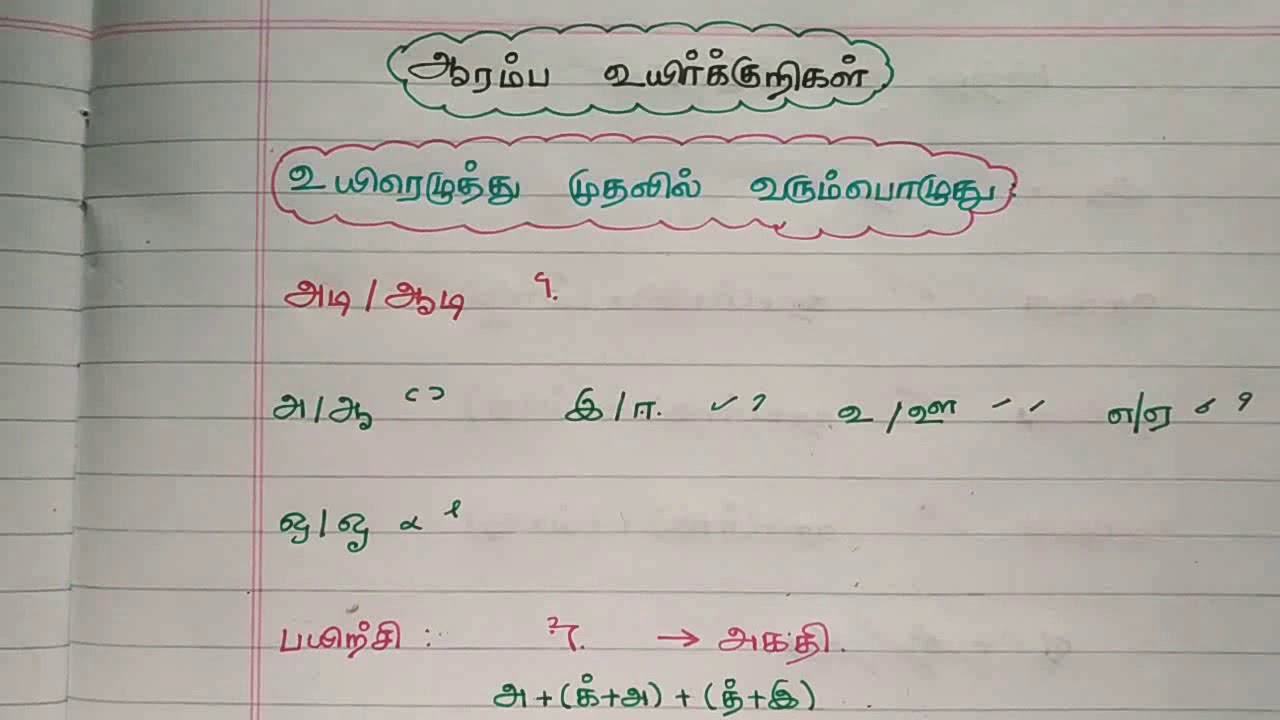 ஆரம்ப உயிர்க்குறிகள்
உயிரெழுத்து முதலில் வரும்பொழுது
அடி / ஆடி
அ / ஆ இ / ஈ. உ / ஊ எ/ஏ
ஒ / ஓ
பயிற்சி : → அகதி.
அ + (க்+அ) + (த்+இ)